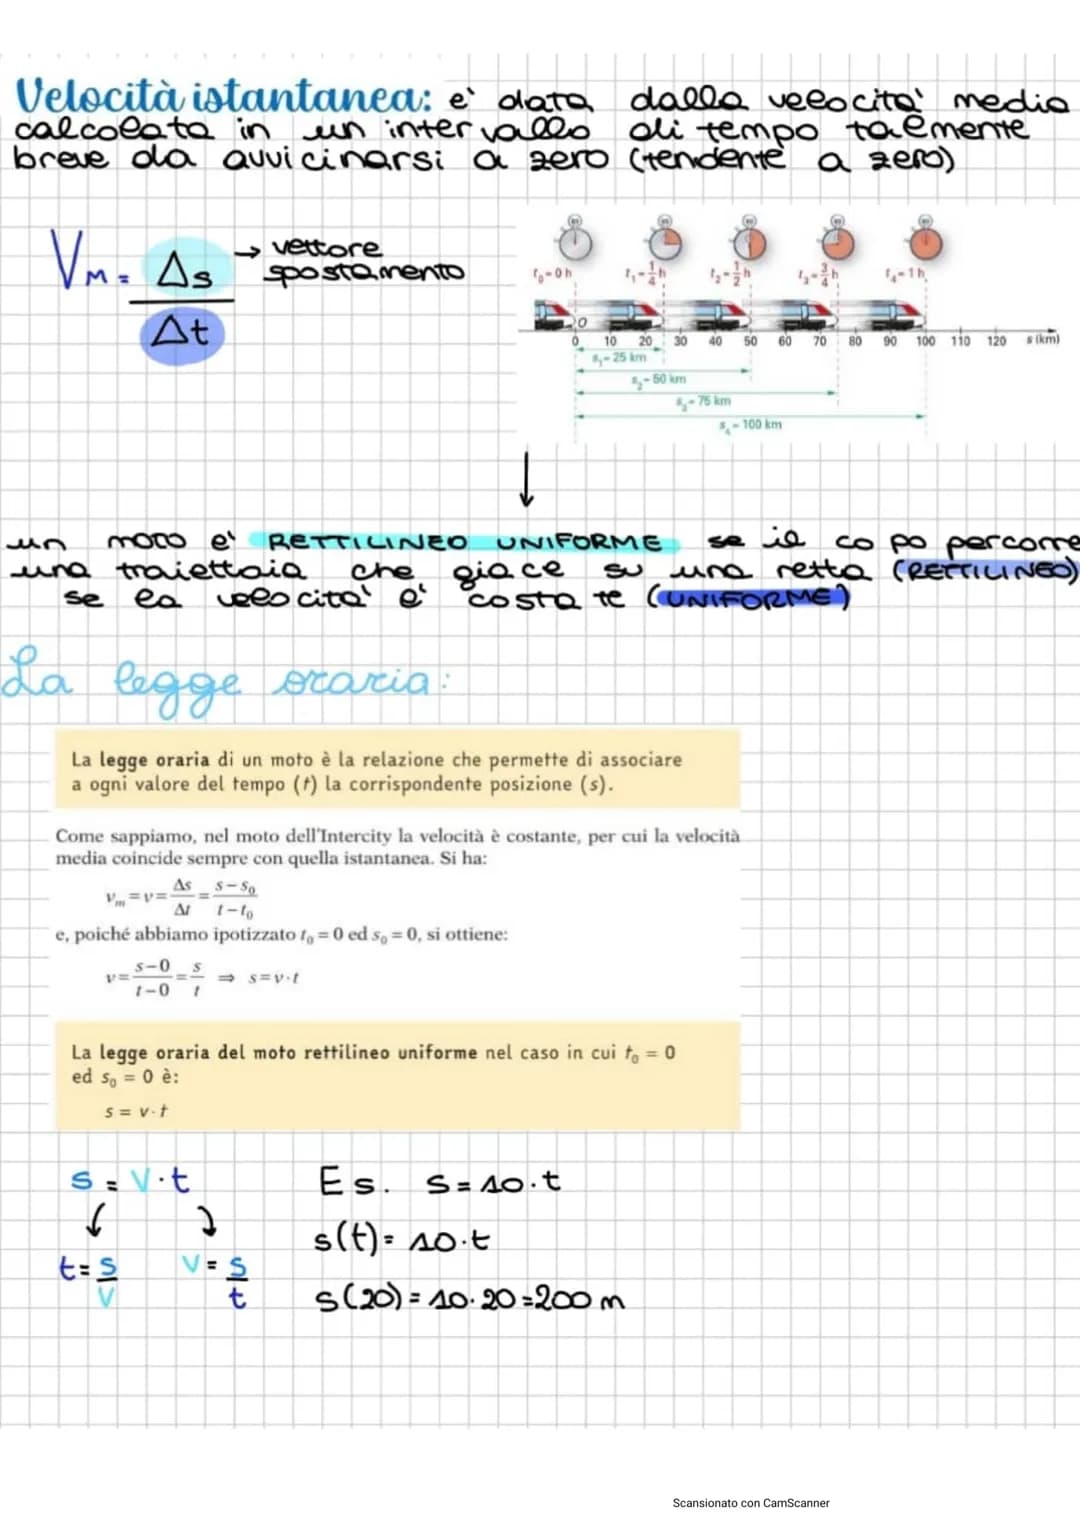 Velocità istantanea: e' data dalla velocita' media
calcolata in un intervallo di tempo talmente
breve da avvicinarsi a zero (tendente a zero)
VM = Δs → vettore spostamento
Δt
t₀=0h t₁=1/4 h t₂=1/2 h t₃=3/4 h t₄=1h
0
0 10 20 30 40 50 60 70 80 90 100 110 120 s (km)
s₁=25 km
s₂=50 km
s₃=75 km
s₄=100 km
↓
un moto e' RETTILINEO UNIFORME se il co po percorre
una traiettoia che giace su una retta (RETTILINEO)
se la velocita' e' costa te (UNIFORME)
La legge oraria:
La legge oraria di un moto è la relazione che permette di associare
a ogni valore del tempo (t) la corrispondente posizione (s).
Come sappiamo, nel moto dell'Intercity la velocità è costante, per cui la velocità
media coincide sempre con quella istantanea. Si ha:
vₘ = v = Δs/Δt = s−s₀/t−t₀
e, poiché abbiamo ipotizzato t₀ = 0 ed s₀ = 0, si ottiene:
v = s−0/t−0 = s/t ⇒ s = v·t
La legge oraria del moto rettilineo uniforme nel caso in cui t₀ = 0
ed s₀ = 0 è:
s = v·t
s = V·t Es. S = 10·t
s(t) = 10·t
t = s/V V = s/t
s(20) = 10·20 = 200 m
Scansionato con CamScanner